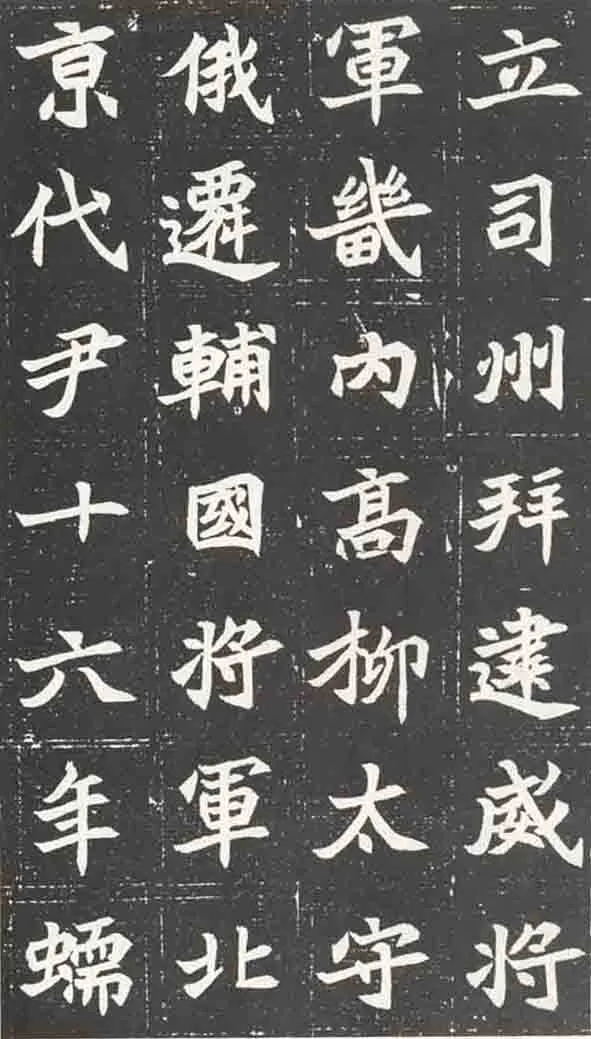 立司州拜建威将
軍畿内高柳太守
俄遷輔國将軍北
京代尹十六年蠕